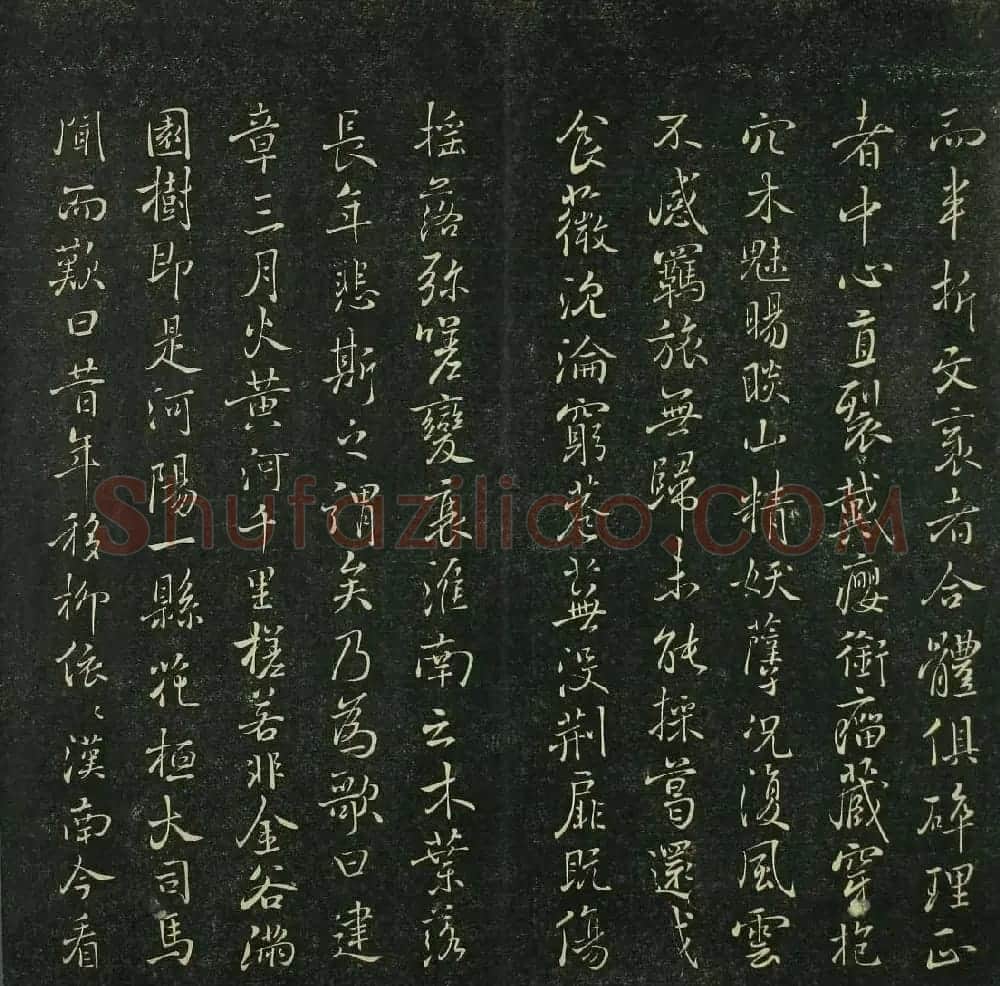 而半折文衺者合體俱碎理正
者中心直裂戴癭銜瘤藏穿抱
穴木魅暘睒山精妖孽况復風雲
不感羈旅無歸未能採葛還成
食薇沉淪窮巷蕪没荆扉既傷
摇落弥嗟變衰淮南云木葉落
長年悲斯之謂矣乃為歌曰建
章三月火黄河千里槎若非金谷滿
園樹即是河陽一縣花桓大司馬
聞而歎曰昔年移柳依〻漢南今看
Shufaziliao.COM